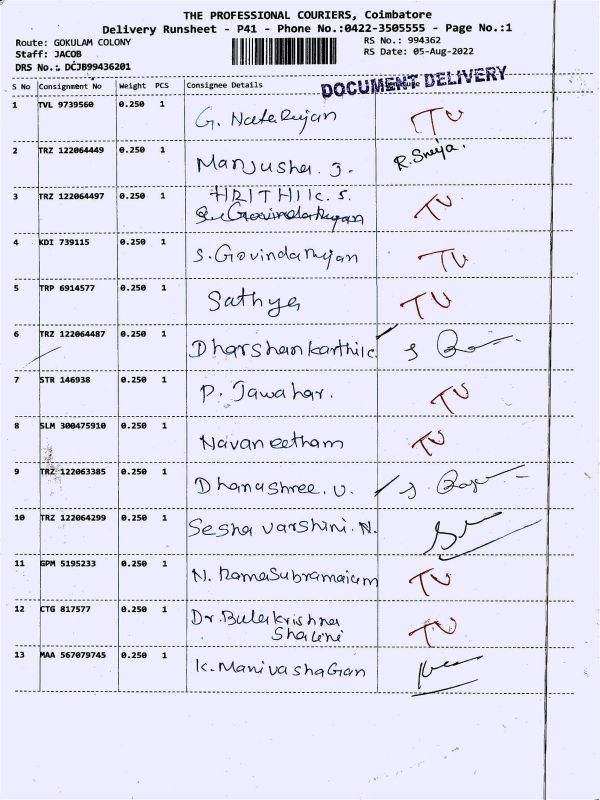 THE PROFESSIONAL COURIERS, Coimbatore
Delivery Runsheet - P41 - Phone No.:0422-3505555 - Page No.:1
Route: GOKULAM COLONY
RS No.: 994362
Staff: JACOB
RS Date: 05-Aug-2022
DRS No.: DCJB99436201
DOCUMENT DELIVERY
S No Consignment No Weight PCS Consignee Details
1 TVL 9739560 0.250 1 G. Natarajan TU
2 TRZ 122064449 0.250 1 Manjusha. J. R. Sneja.
3 TRZ 122064497 0.250 1 HRITHIK. S. TU
Govindarajan
4 KDI 739115 0.250 1 S. Govindarajan TU
5 TRP 6914577 0.250 1 Sathya TU
6 TRZ 122064487 0.250 1 Dharshan karthik
7 STR 146938 0.250 1 P. Jawahar. TU
8 SLM 300475910 0.250 1 Navaneetham TU
9 TRZ 122063385 0.250 1 Dhanashree. U.
10 TRZ 122064299 0.250 1 Sesha varshini. N.
11 GPM 5195233 0.250 1 N. RamaSubramaium TU
12 CTG 817577 0.250 1 Dr. Balakrishna TU
Shalini
13 MAA 567079745 0.250 1 K. ManivashaGan